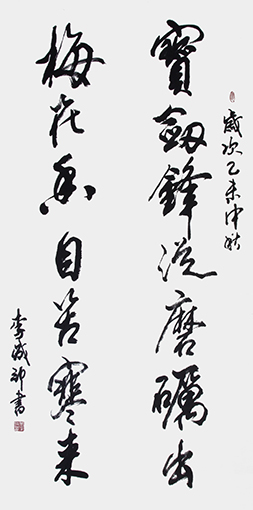 歲次乙未中秋
寶劍鋒從磨礪出
梅花香自苦寒來
李成印書